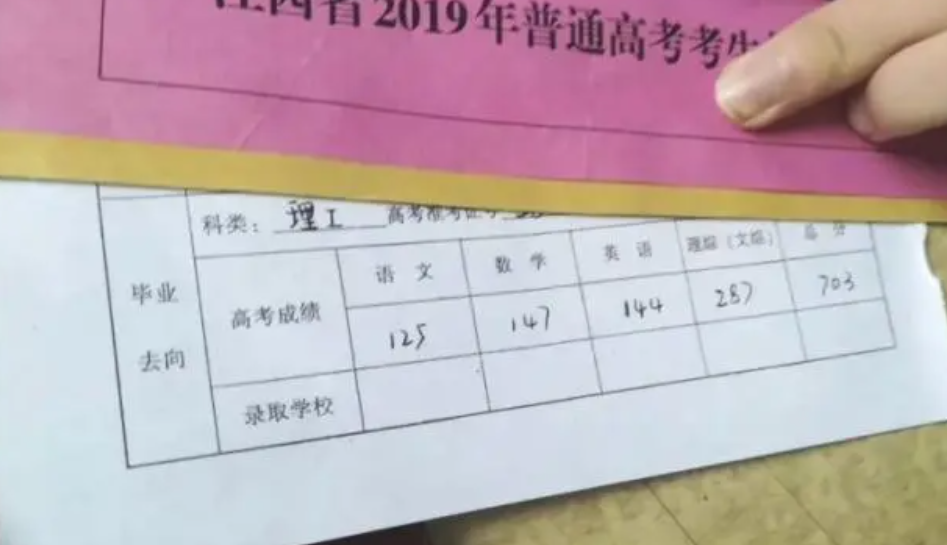 江西省2019年普通高考考生
科类：理工 高考准考证号
毕业去向
高考成绩
语文 数学 英语 理综（文综） 总分
125 147 144 287 703
录取学校